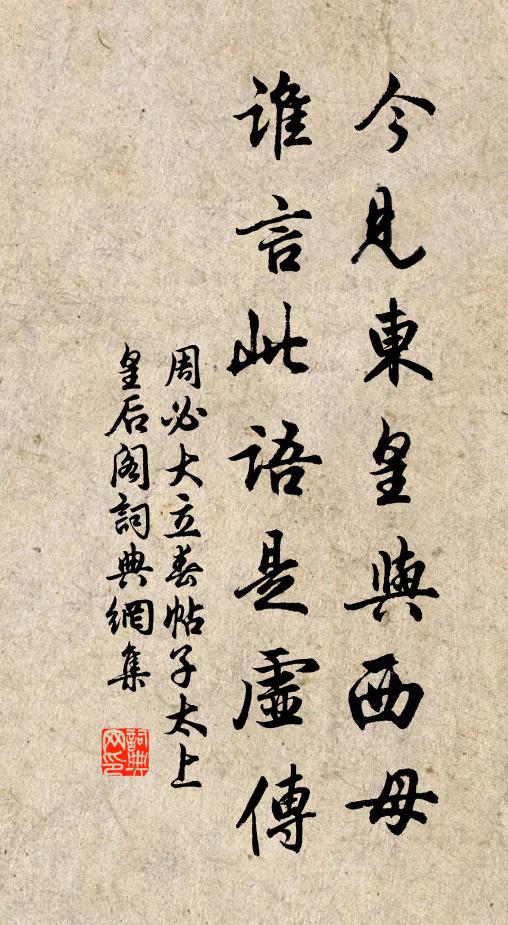 今見東皇與西母
誰言此語是虛傳
周必大立春帖子太上
皇后閣詞典網集
詞典
网印